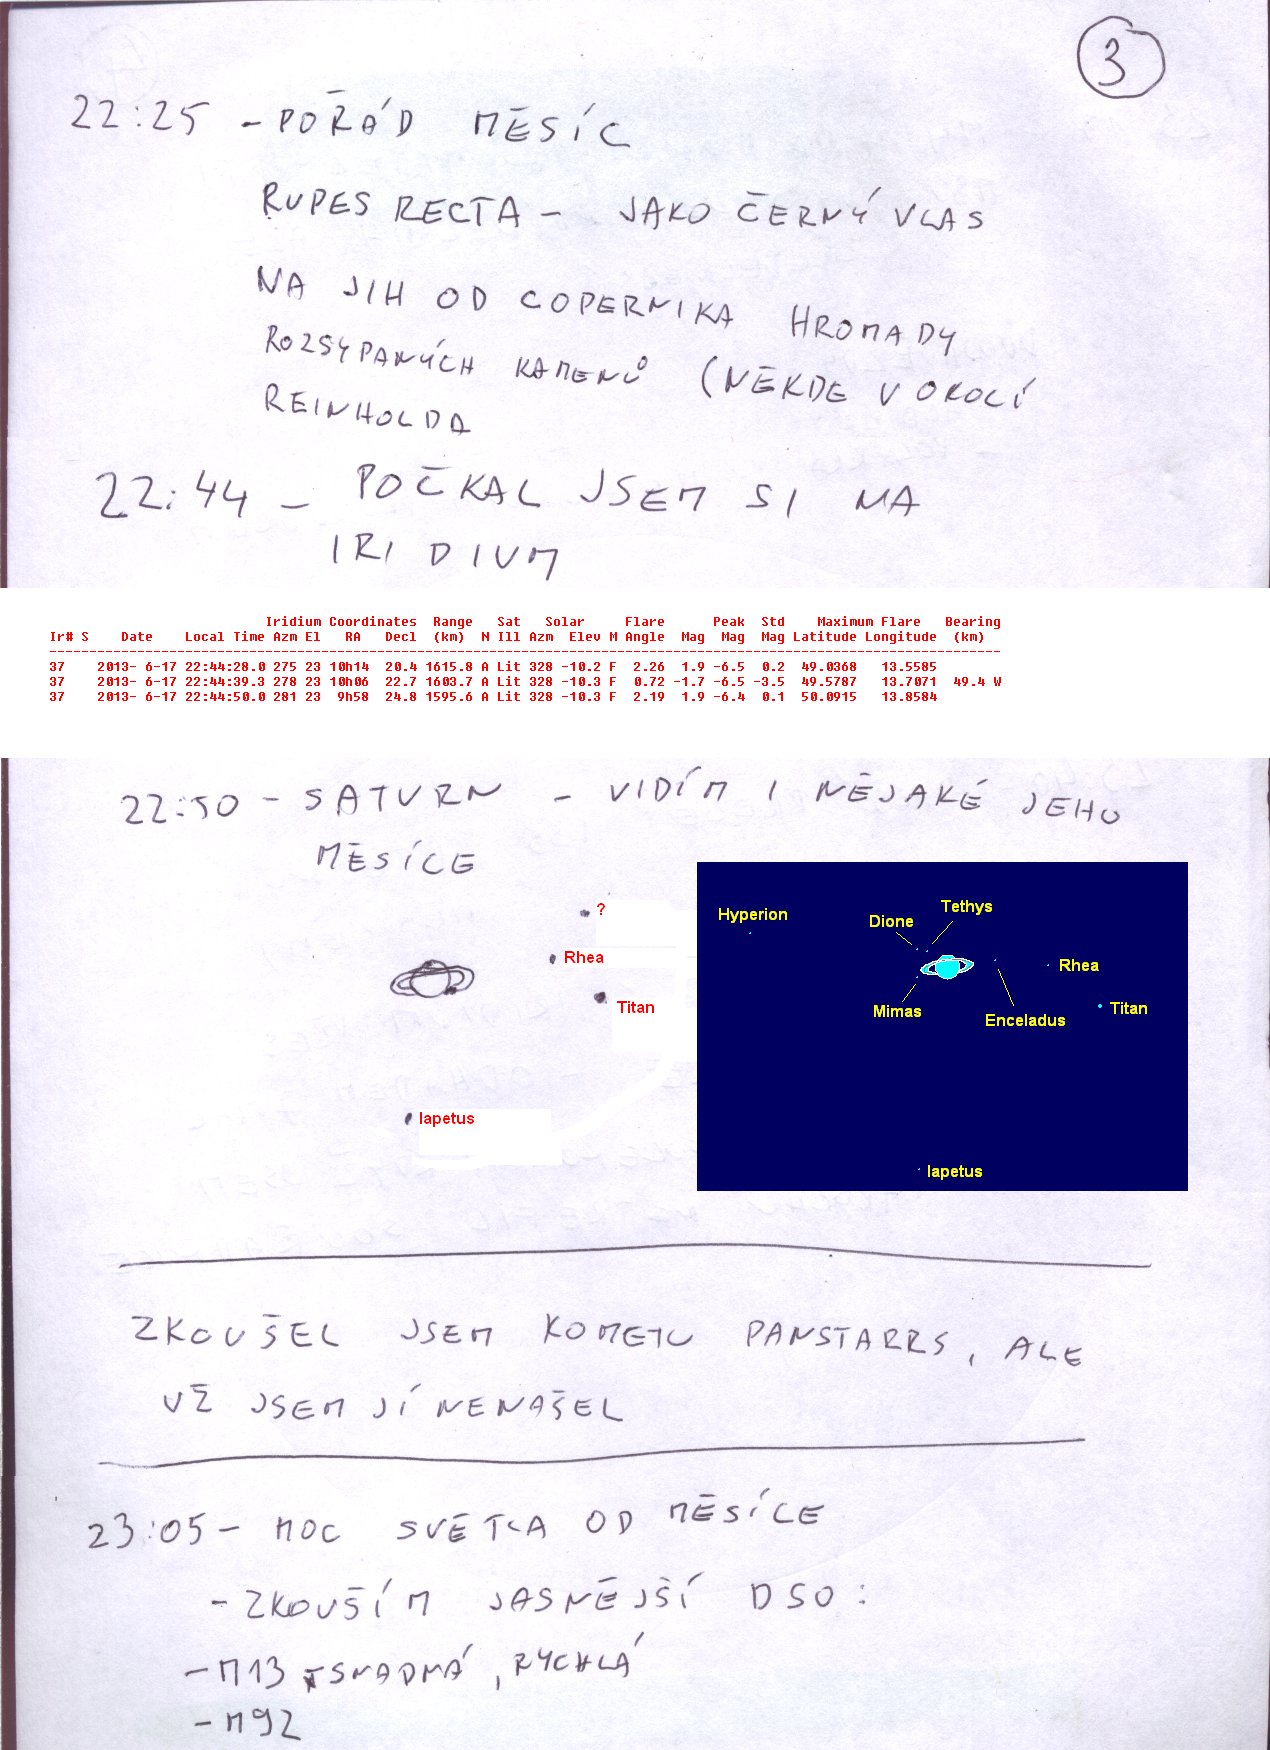 3
22:25 - POŘÁD MĚSÍC
RUPES RECTA - JAKO ČERNÝ VLAS
NA JIH OD COPERNIKA HROMADY
ROZSYPANÝCH KAMENŮ (NĚKDE V OKOLÍ
REINHOLDA
22:44 - POČKAL JSEM SI NA
IRIDIUM
Iridium Coordinates Range Sat Solar Flare Peak Std Maximum Flare Bearing
Ir# S Date Local Time Azm El RA Decl (km) N Ill Azm Elev M Angle Mag Mag Mag Latitude Longitude (km)
37 2013- 6-17 22:44:28.0 275 23 10h14 20.4 1615.8 A Lit 328 -10.2 F 2.26 1.9 -6.5 0.2 49.0368 13.5585
37 2013- 6-17 22:44:39.3 278 23 10h06 22.7 1603.7 A Lit 328 -10.3 F 0.72 -1.7 -6.5 -3.5 49.5787 13.7071 49.4 W
37 2013- 6-17 22:44:50.0 281 23 9h58 24.8 1595.6 A Lit 328 -10.3 F 2.19 1.9 -6.4 0.1 50.0915 13.8584
22:50 - SATURN - VIDÍM I NĚJAKÉ JEHO
MĚSÍCE
?
Rhea
Titan
Iapetus
Hyperion
Tethys
Dione
Rhea
Mimas
Enceladus
Titan
Iapetus
ZKOUŠEL JSEM KOMETU PANSTARRS, ALE
UŽ JSEM JÍ NENAŠEL
23:05 - MOC SVĚTLA OD MĚSÍCE
- ZKOUŠÍM JASNĚJŠÍ DSO:
- M13 SNADNÁ, RYCHLÁ
- M92